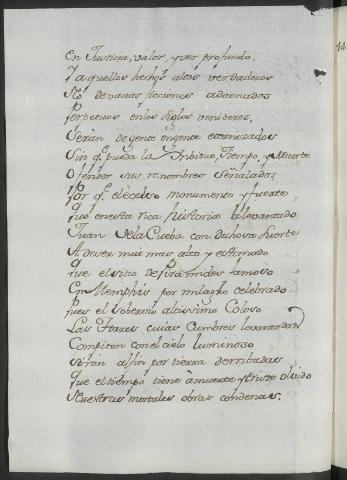 En Justicia, valor, y ser profundo.
Y aquellos hechos altos verdaderos
No de vanas ficciones adornados
Perpetuos en los siglos venideros,
Seràn de gente en gente eternizados
Sin q.e pueda la Imbidia, Tiempo, y Muerte
Ofender sus renombres Señalados
Por q.e el excelso monumento y fuerte
Que en esta rica historia a levantado
Juan de la Cueba con dichosa suerte
A de ser mui mas alto y estimado
Que el sitio de Piramides famoso
En Memphis por milagro celebrado
Pues el sobervio altissimo Coloso
Las Torres cuias Cumbres levantadas
Compiten con el cielo luminoso
seràn al fin por tierra derribadas
que el tiempo tiene à muerte y triste olvido
Nuestras mortales obras condenas.
14